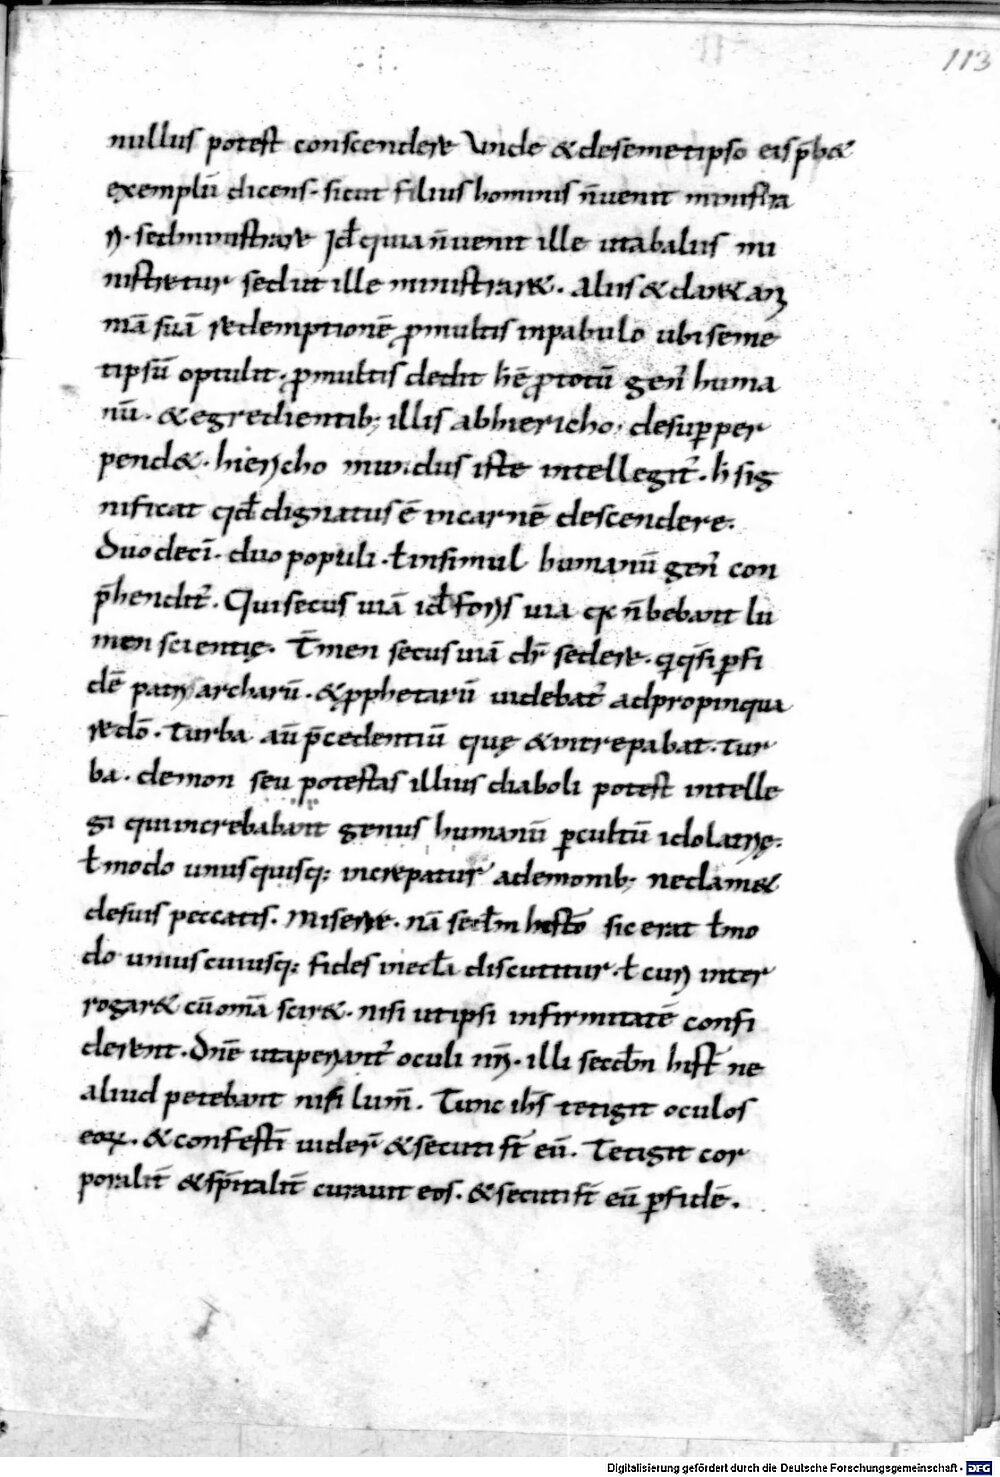 113
nullus potest conscendere Unde & desemetipso eis p̄b&
exemplū dicens· sicut filius hominis n̄uenit ministra
ri· sedministrare Id̄ quia n̄uenit ille utabaliis mi
nistretur sed ut ille ministrar&. Aliis & dar& ani
mā suā redemptionē ꝓmultis inpabulo ubi seme
tipsū optulit· ꝓmultis dedit h̄ ē ꝓtotū gen̄ huma
nū· & egredientib; illis abhiericho, desuꝑper
pend&· hiericho mundus iste intellegit̄· h̄ sig
nificat qd̄ dignatus ē incarnē descendere.
Duodecī· duo populi· ł insimul humanū gen̄ con
p̄hendit̄. Qui secus uiā id̄ foris uia qꝛ n̄ hebant lu
men scientię. T̄men secus uiā dr̄ sedere· q̇q̇si ꝑfi
dē patriarcharū· & ꝓphetarū uidebat̄ adpropinqua
re dō· Turba aū p̄cedentiū quę & increpabat· tur
ba· demon seu potestas illius diaboli potest intelle
gi qui increbabant genus humanū ꝑcultū idolatrię·
ł modo unusquisq; increpatur ademonib; neclam&
desuis peccatis. Miserere· nā secd̄m histō sic erat ł mo
do uniuscuiusq; fides inecl̄a discutitur· ł cur inter
rogar& cū omīa scir&· nisi ut ipsi infirmitatē confi
derent. Dn̄e utaperiant̄ oculi nr̄i· illi secd̄m hist̄ ne
aliud petebant nisi lum̄. Tunc ih̄s tetigit oculos
eoꝝ· & confestī uider̄ & secuti st̄ eū. Tetigit cor
poralit̄ & sp̄iralit̄ curauit eos· & secuti st̄ eū ꝑfidē.
Digitalisierung gefördert durch die Deutsche Forschungsgemeinschaft - DFG